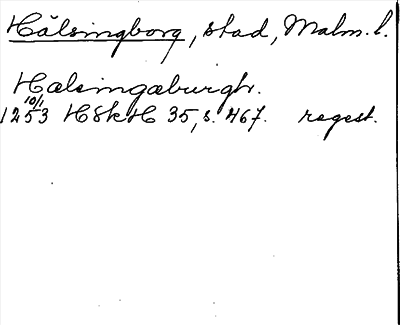 Hälsingborg, stad, Malm. l.
Halsingaburgh.
10/1
1253 HSkH 35, s. 467. regest.